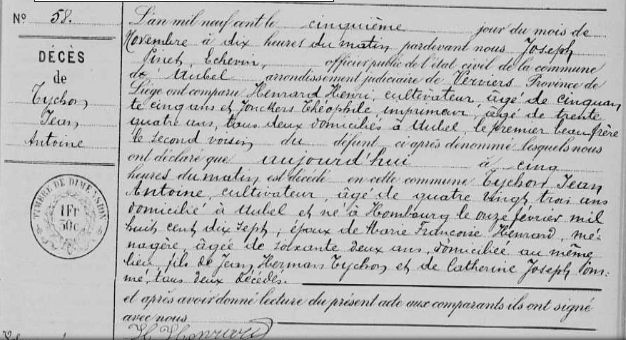 N° 58.
DÉCÈS
de
Tychon
Jean
Antoine
TIMBRE DE DIMENSION
1 Fr
50c
L'an mil neuf cent le cinquième jour du mois de
Novembre à dix heures du matin pardevant nous Joseph
Echevin, officier public de l'état civil de la commune
de Aubel arrondissement judiciaire de Verviers Province de
Liége ont comparu Henrard Henri, cultivateur, âgé de cinquan
te cinq ans et Jonckers Théophile imprimeur, âgé de trente
quatre ans, tous deux domiciliés à Aubel, le premier beau frère
le second voisin du défunt ci après dénommé lesquels nous
ont déclaré que aujourd'hui à cinq
heures du matin est décédé en cette commune Tychon, Jean
Antoine, cultivateur, âgé de quatre vingt trois ans
domicilié à Aubel et né à Hombourg le onze février mil
huit cent dix sept, époux de Marie Françoise Henrard, mé-
nagère, âgée de soixante deux ans, domiciliée au même
lieu, fils de Jean Herman Tychon et de Catherine Joseph
mé, tous deux décédés.
et après avoir donné lecture du présent acte aux comparants ils ont signé
avec nous
H Henrard